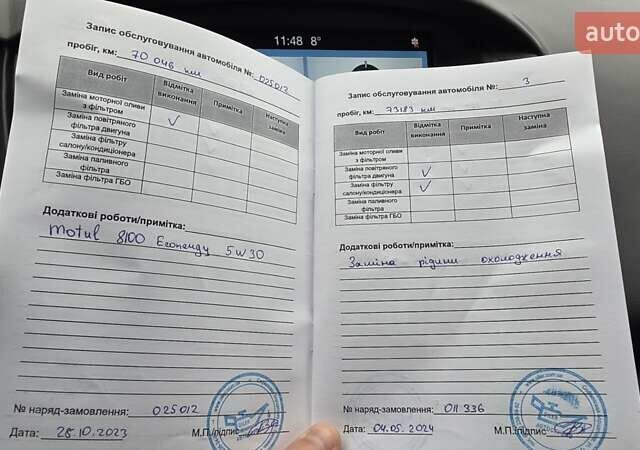 11:48 8°
auto
Запис обслуговування автомобіля №: 025012
пробіг, км: 70 046 км
Вид робіт Відмітка виконання Примітка Наступна заміна
Заміна моторної оливи з фільтром ✓
Заміна повітряного фільтра двигуна
Заміна фільтру салону/кондиціонера
Заміна паливного фільтра
Заміна фільтра ГБО
Додаткові роботи/примітка:
Motul 8100 Econergy 5w30
№ наряд-замовлення: 025012
Дата: 28.10.2023 М.П./підпис
Запис обслуговування автомобіля №: 3
пробіг, км: 73183 км
Вид робіт Відмітка виконання Примітка Наступна заміна
Заміна моторної оливи з фільтром
Заміна повітряного фільтра двигуна ✓
Заміна фільтру салону/кондиціонера ✓
Заміна паливного фільтра
Заміна фільтра ГБО
Додаткові роботи/примітка:
Заміна рідини охолодження
№ наряд-замовлення: 011336
Дата: 04.05.2024 М.П./підпис